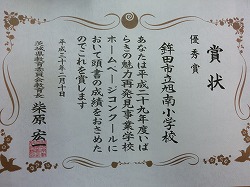 賞状
優秀賞
鉾田市立旭南小学校
あなたは平成二十九年度いば
らきの魅力再発見事業学校
ホームページコンクールに
おいて頭書の成績をおさめた
のでこれを賞します
平成三十年二月十日
茨城県教育委員会教育長
柴原宏一